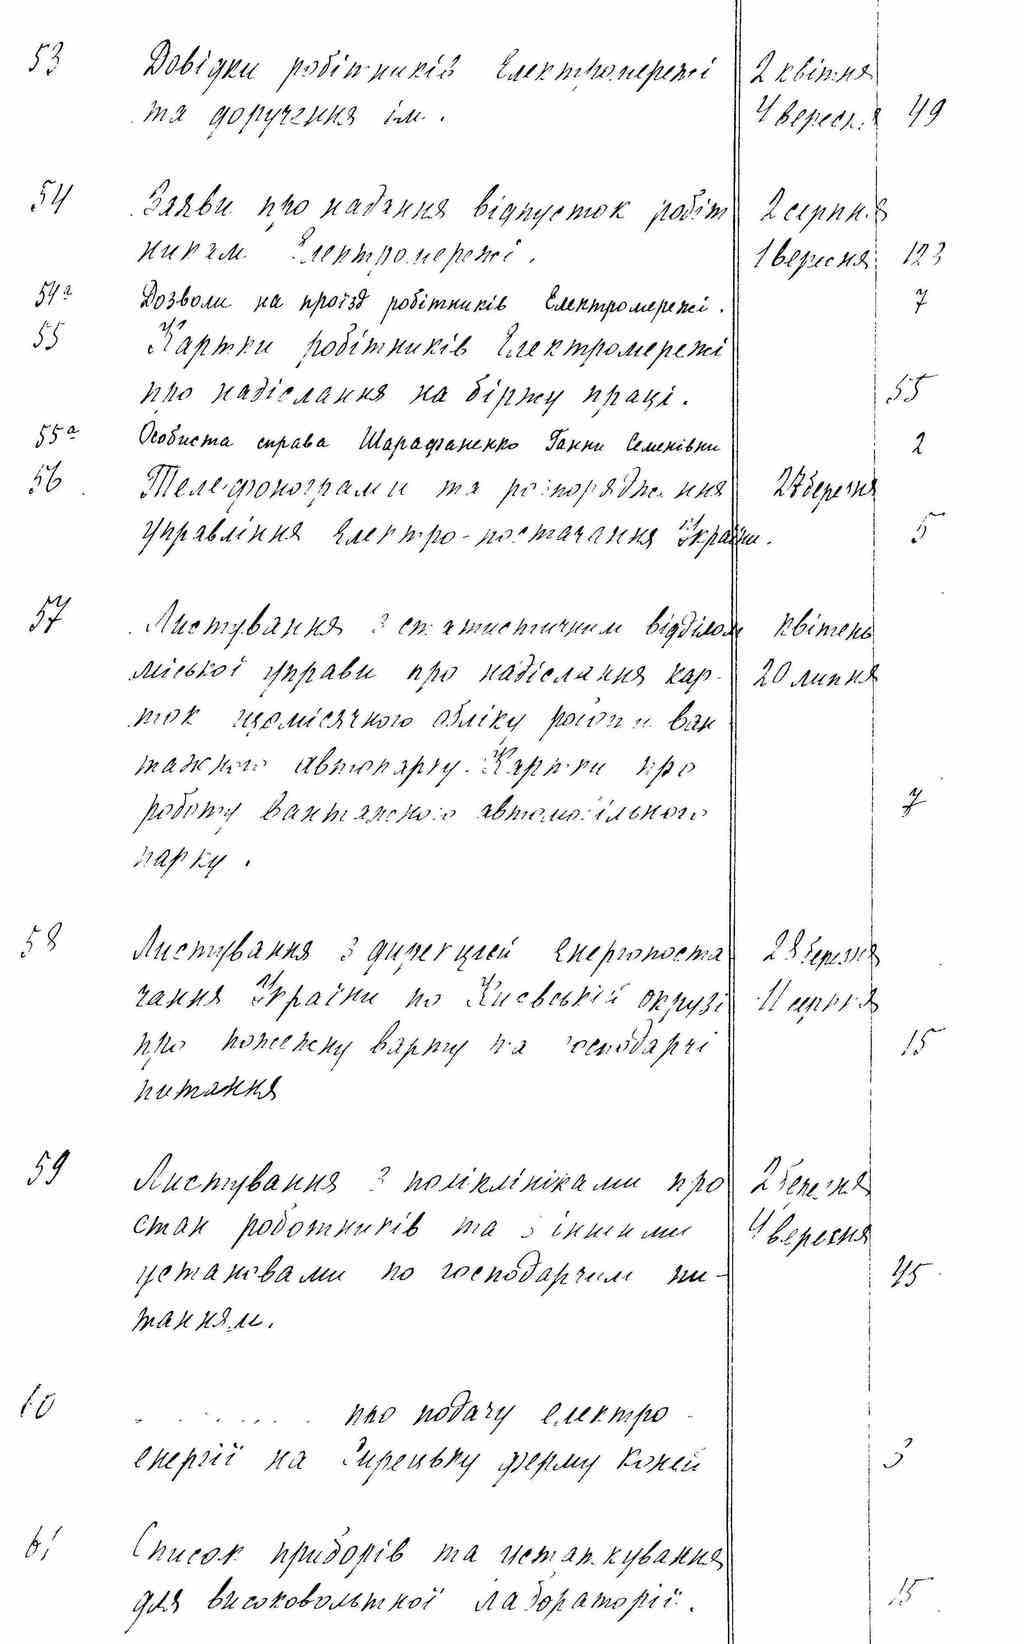 53 Довідки робітників Електромережі 2 квітня
та доручення їм. 4 вересня 49
54 Заяви про надання відпусток робіт 2 серпня
никам Електромережі. 1 вересня 123
54а Дозволи на проїзд робітників Електромережі. 7
55 Картки робітників Електромережі
про надіслання на біржу праці. 55
55а Особиста справа Шарафаненко Ганни Семенівни 2
56 Телефонограми та розпорядження 27 березня
Управління Електро-постачання України. 5
57 Листування з статистичним відділом квітень
міської управи про надіслання кар- 20 липня
ток щомісячного обліку роботи ван
тажного автопарку. Картки про
роботу вантажного автомобільного 7
парку.
58 Листування з дирекцією Енергопоста 28 березня
чання України по Київській окрузі 11 серпня
про пожежну варту та господарчі 15
питання
59 Листування з поліклініками про 2 березня
стан роботників та з іншими 4 вересня
установами по господарчим пи- 45
танням.
60 про подачу електро-
енергії на Сирецьку ферму коней 3
61 Список приборів та устаткування
для високовольтної лабораторії. 15